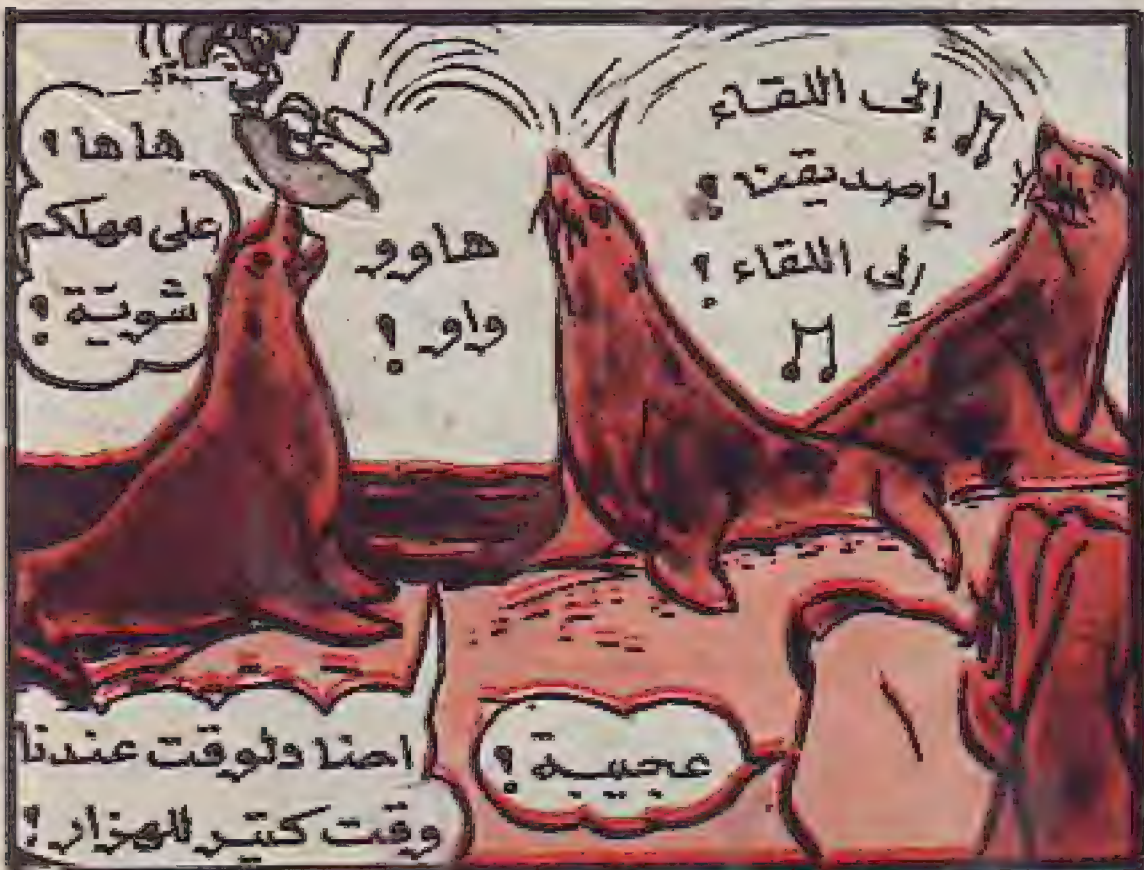 إلى اللقاء
ياصديقت ؟
إلى اللقاء ؟
هاوو
واو !
ها ها ؟
على مهلكم
شوية !
عجيبة ؟
احنا دلوقت عندنا
وقت كتير للهزار !